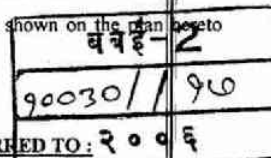 shown on the plan hereto
बबई-2
१००३०// १७
RRED TO : २००६